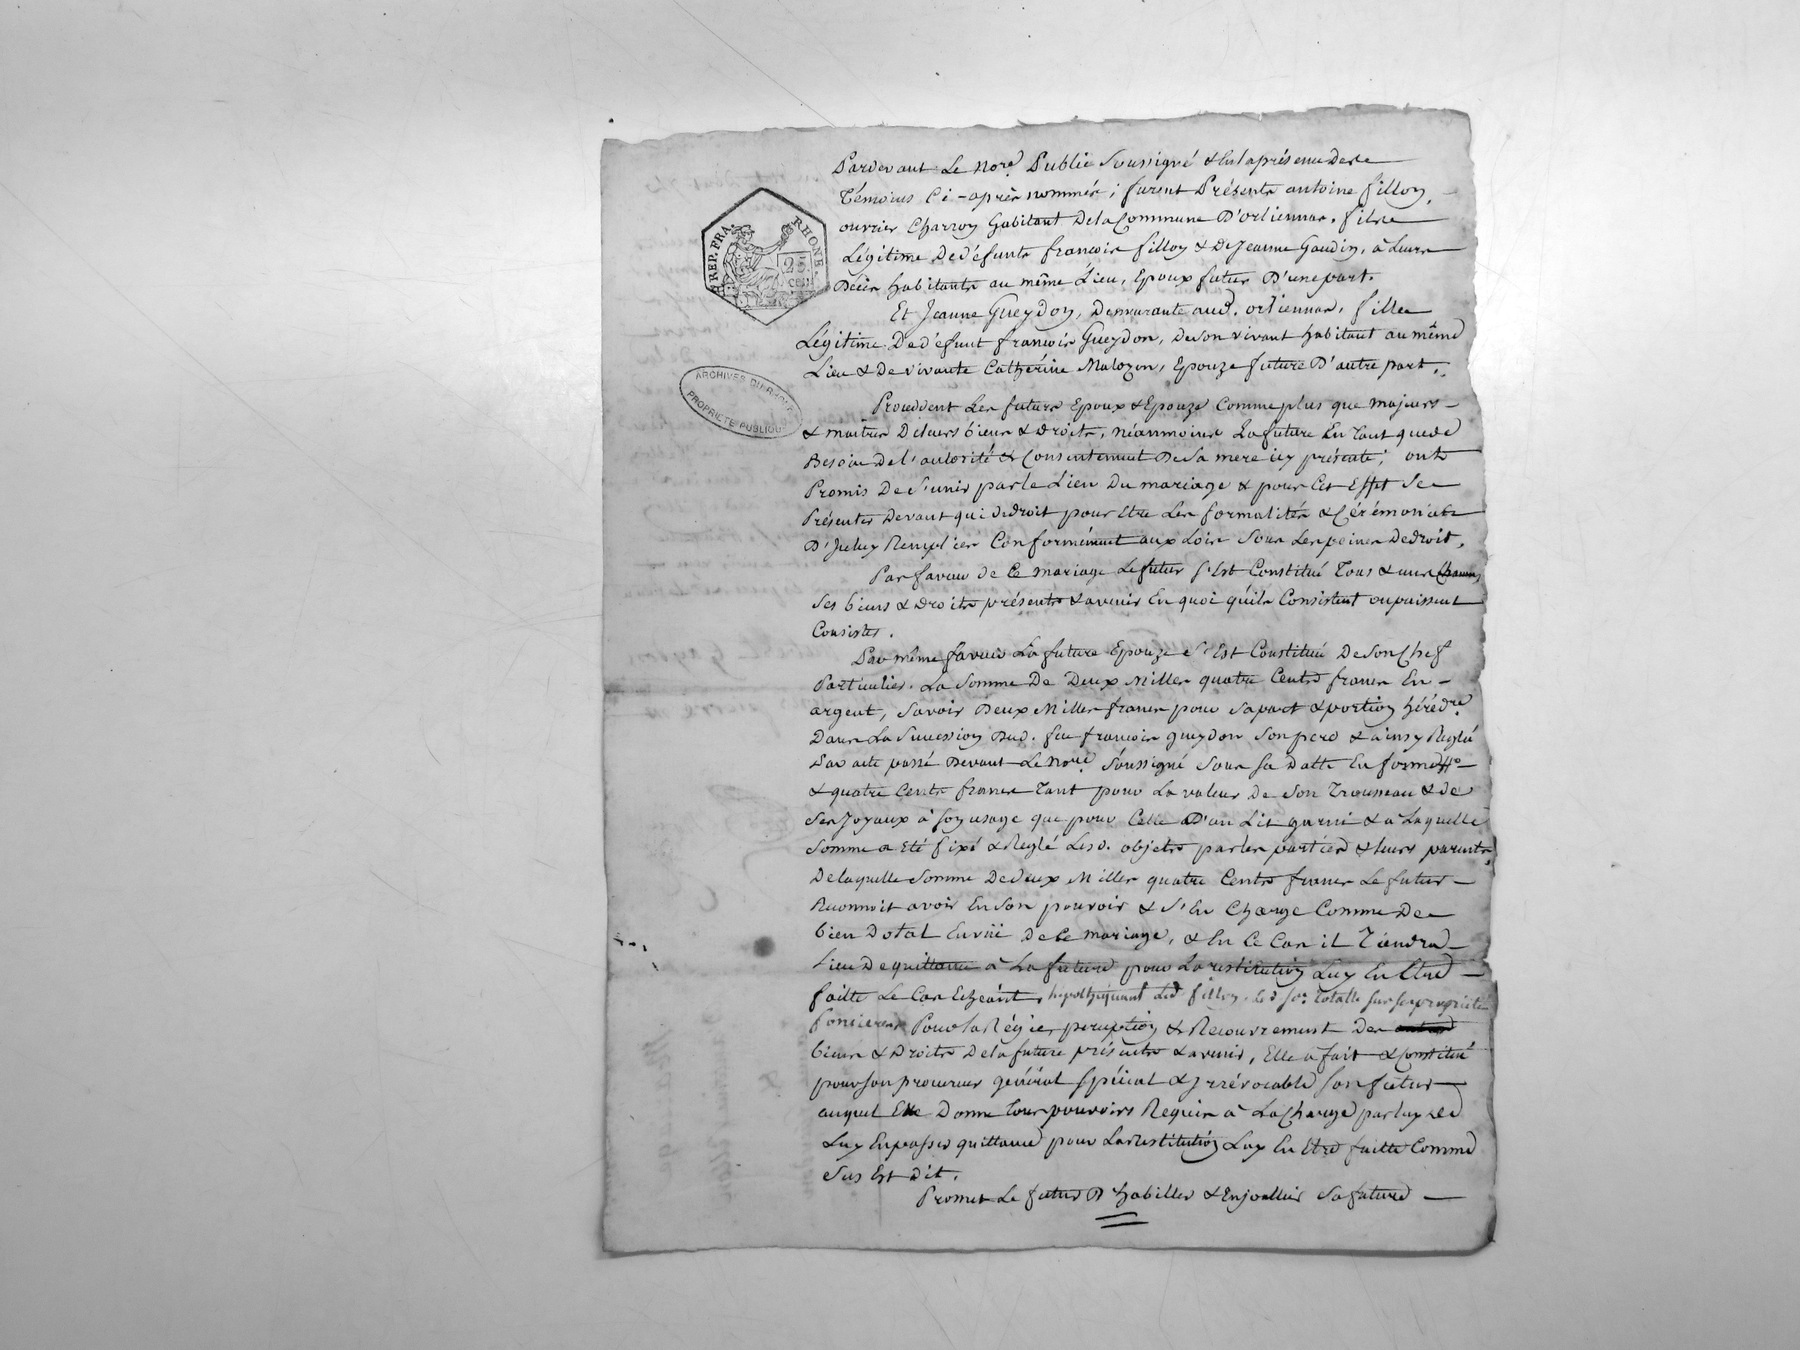 Pardevant Le Nore. Public Soussigné & En la présence des
Témoins Ci-après nommés; furent Présents antoine fillon,
ouvrier Charron habitant De la Commune D'orliennas, fils
Légitime De défunts francois fillon & De Jeanne Gaudin, à Leurs
Décès habitants au même Lieu, Epoux futur D'une part.
Et Jeanne Gueydon, Demeurante aud. orliennas, fille
Légitime De défunt francois Gueydon, De son vivant habitant au même
Lieu & De vivante Catherine Malozon, Epouze future D'autre part.
Procèdent Les futurs Epoux & Epouze Comme plus que majeurs
& maitres De leurs biens & droits, néanmoins La future En tant que de
Besoin de l'autorité & Consentement De Sa mere icy présente; ont
Promis De S'unir par le Lien Du mariage & pour Cet Effet Se
Présenter Devant qui de droit pour Etre Les formalités & Cérémonies
D'Iceluy Remplies Conformément aux Loix Sous Les peines De droit.
Par faveur de Ce mariage Le futur S'Est Constitué Tous & uns Chacuns
Ses biens & droits présents & avenir En quoi qu'ils Consistent ou puissent
Consister.
Par même faveur La future Epouze S'Est Constitué De Son Chef
Particulier, La Somme De Deux Milles quatre Cents francs En
argent, Savoir Deux Milles francs pour Sa part & portion hérédre.
Dans La Succession Dud. feu francois gueydon Son pere & ainsy Réglé
Par acte passé Devant Le Nore. Soussigné Sous Sa Datte En forme
& quatre Cents francs Tant pour La valeur De Son Trousseau & de
Ses Joyaux à Son usage que pour Celle D'un Lit garni & a Laquelle
Somme a Eté fixé & Reglé Lesd. objets par les parties & Leurs parents,
De laquelle Somme De deux Milles quatre Cents francs Le futur
Reconnoit avoir En Son pouvoir & S'En Charge Comme De
bien Dotal En vue de Ce mariage, & En Ce Cas il Tiendra
Lieu De quittance à La future pour La restitution Luy En Etre
faitte Le Cas Echéant, hipothéquant led. fillon, lad. so. totalle sur ses propriétés
foncieres Pour La Régie, perception & Recouvrement Des
biens & Droits De la future présents & avenir, Elle a fait & Constitué
pour Son procureur général Spécial & Irrévocable Son futur
auquel Elle Donne Tous pouvoirs Requis à La Charge par luy De
Luy En passer quittance pour La restitution Luy En Etre faitte Comme
Sus Est Dit.
Promet Le futur D'habiller & Enjoallier Sa future
REP. FRA.
RHONE.
25
CEN.
ARCHIVES DU RHONE
PROPRIETE PUBLIQUE